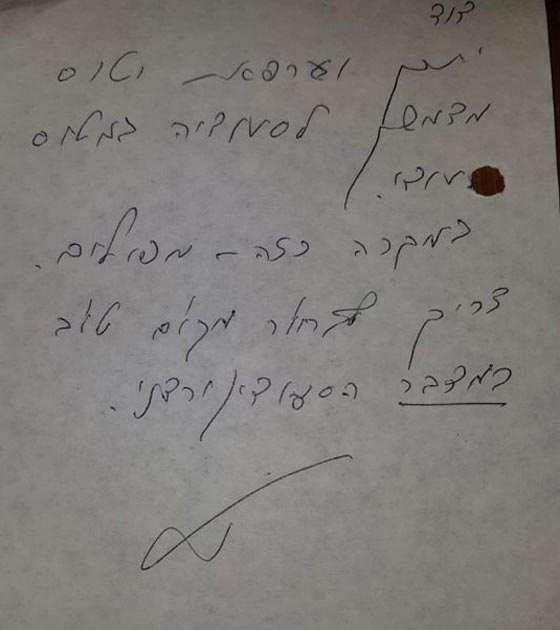 דוד
יתכן וערפאת יטוס
מדמשק לסעודיה במטוס
סעודי.
במקרה כזה - מפילים.
צריך לבחור מקום טוב
במדבר הסעודי/ירדני.